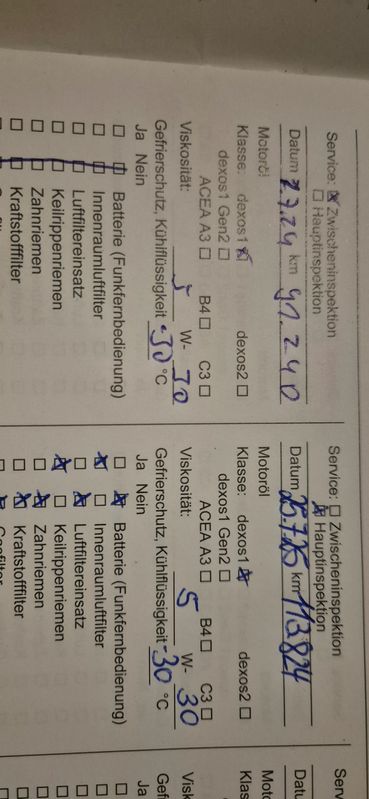 Service: ☒ Zwischeninspektion
☐ Hauptinspektion
Datum 2.7.24 km 91.240
Motoröl
Klasse: dexos1 ☒ dexos2 ☐
dexos1 Gen2 ☐
ACEA A3 ☐ B4 ☐ C3 ☐
Viskosität: 5 W- 30
Gefrierschutz, Kühlflüssigkeit -30 °C
Ja Nein
☐ ☐ Batterie (Funkfernbedienung)
☐ ☐ Innenraumluftfilter
☐ ☐ Luftfiltereinsatz
☐ ☐ Keilrippenriemen
☐ ☐ Zahnriemen
☐ ☐ Kraftstofffilter
Service: ☐ Zwischeninspektion
☒ Hauptinspektion
Datum 25.7.25 km 113824
Motoröl
Klasse: dexos1 ☒ dexos2 ☐
dexos1 Gen2 ☐
ACEA A3 ☐ B4 ☐ C3 ☐
Viskosität: 5 W- 30
Gefrierschutz, Kühlflüssigkeit -30 °C
Ja Nein
☐ ☒ Batterie (Funkfernbedienung)
☒ ☐ Innenraumluftfilter
☐ ☒ Luftfiltereinsatz
☒ ☐ Keilrippenriemen
☐ ☒ Zahnriemen
☐ ☒ Kraftstofffilter
Ja